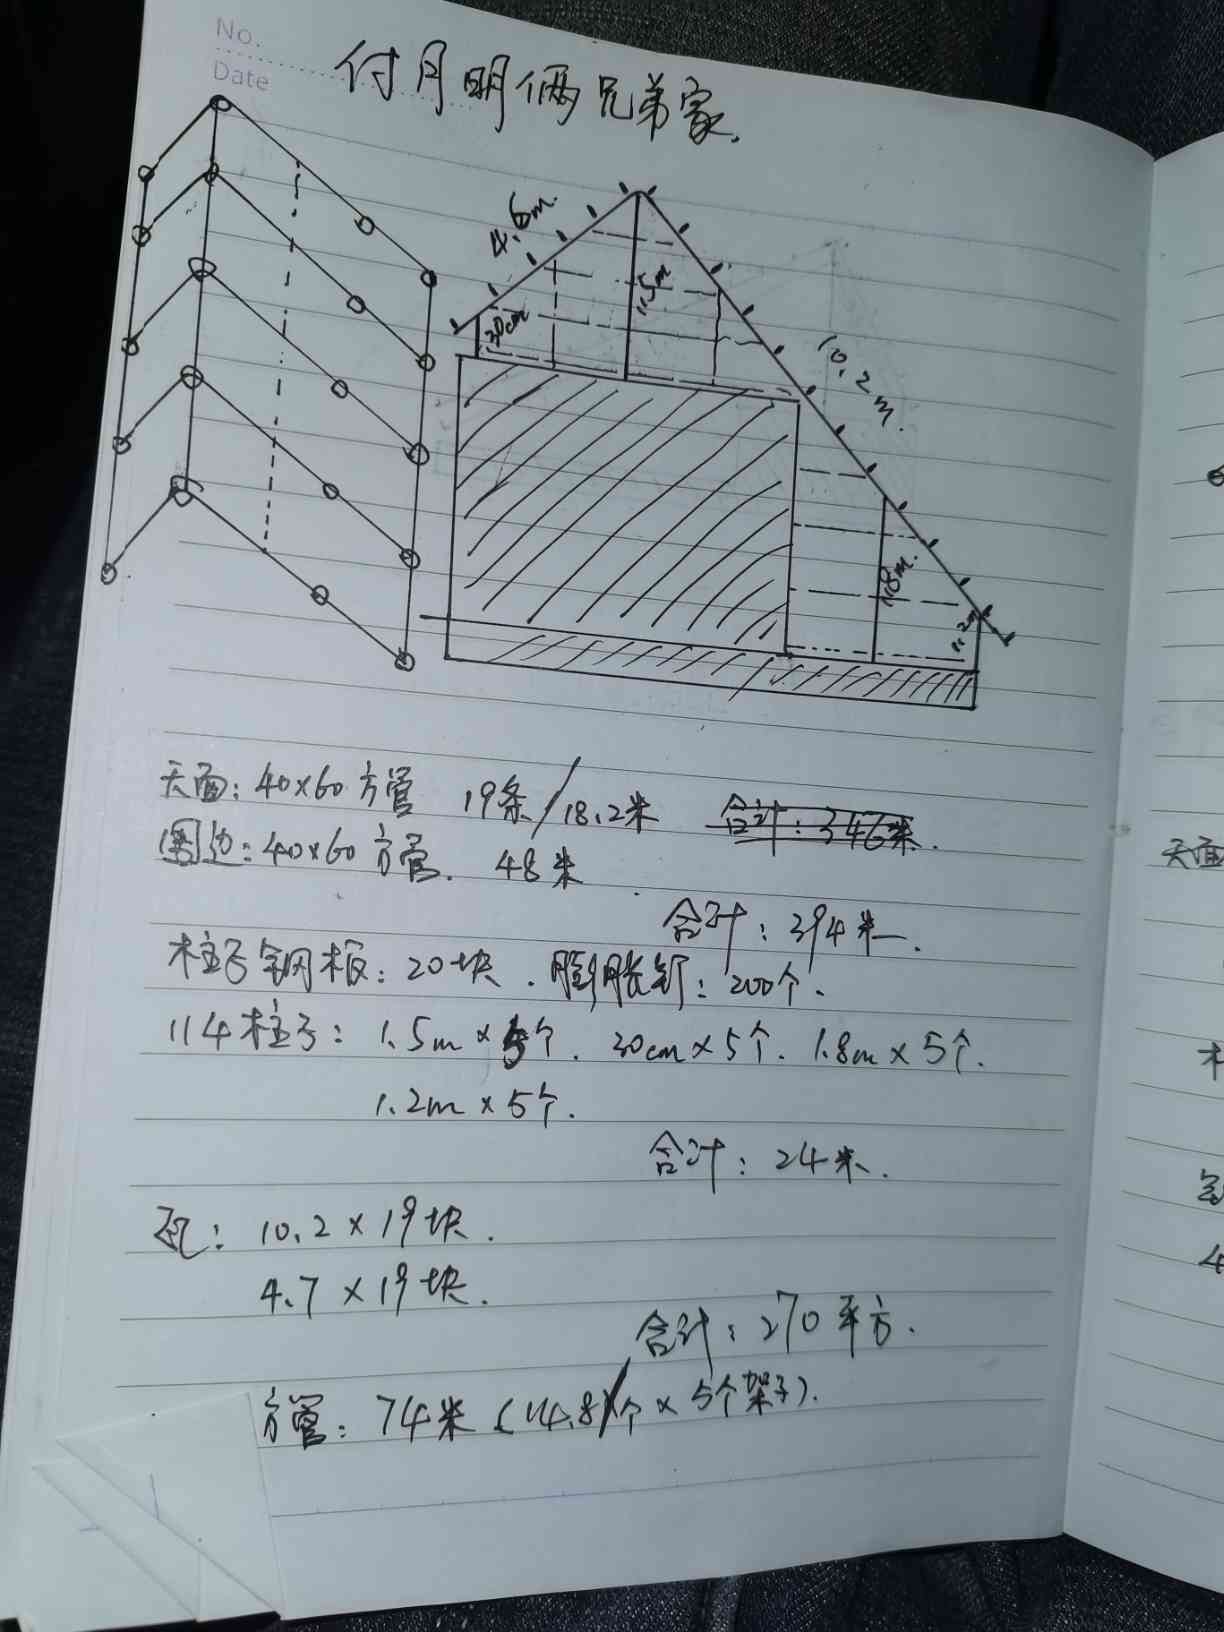 No.
Date
付月明俩兄弟家.
4.6m.
1.5m
30cm
10.2m.
1.8m.
1.2m
天面: 40×60方管 19条/18.2米 合计:346米.
围边: 40×60方管. 48米
合计: 394米.
柱子钢板: 20块. 膨胀钉: 200个.
114柱子: 1.5m×5个. 30cm×5个. 1.8m×5个.
1.2m×5个.
合计: 24米.
瓦: 10.2×19块.
4.7×19块.
合计: 270平方.
方管: 74米 (14.8/个×5个架子).
天面